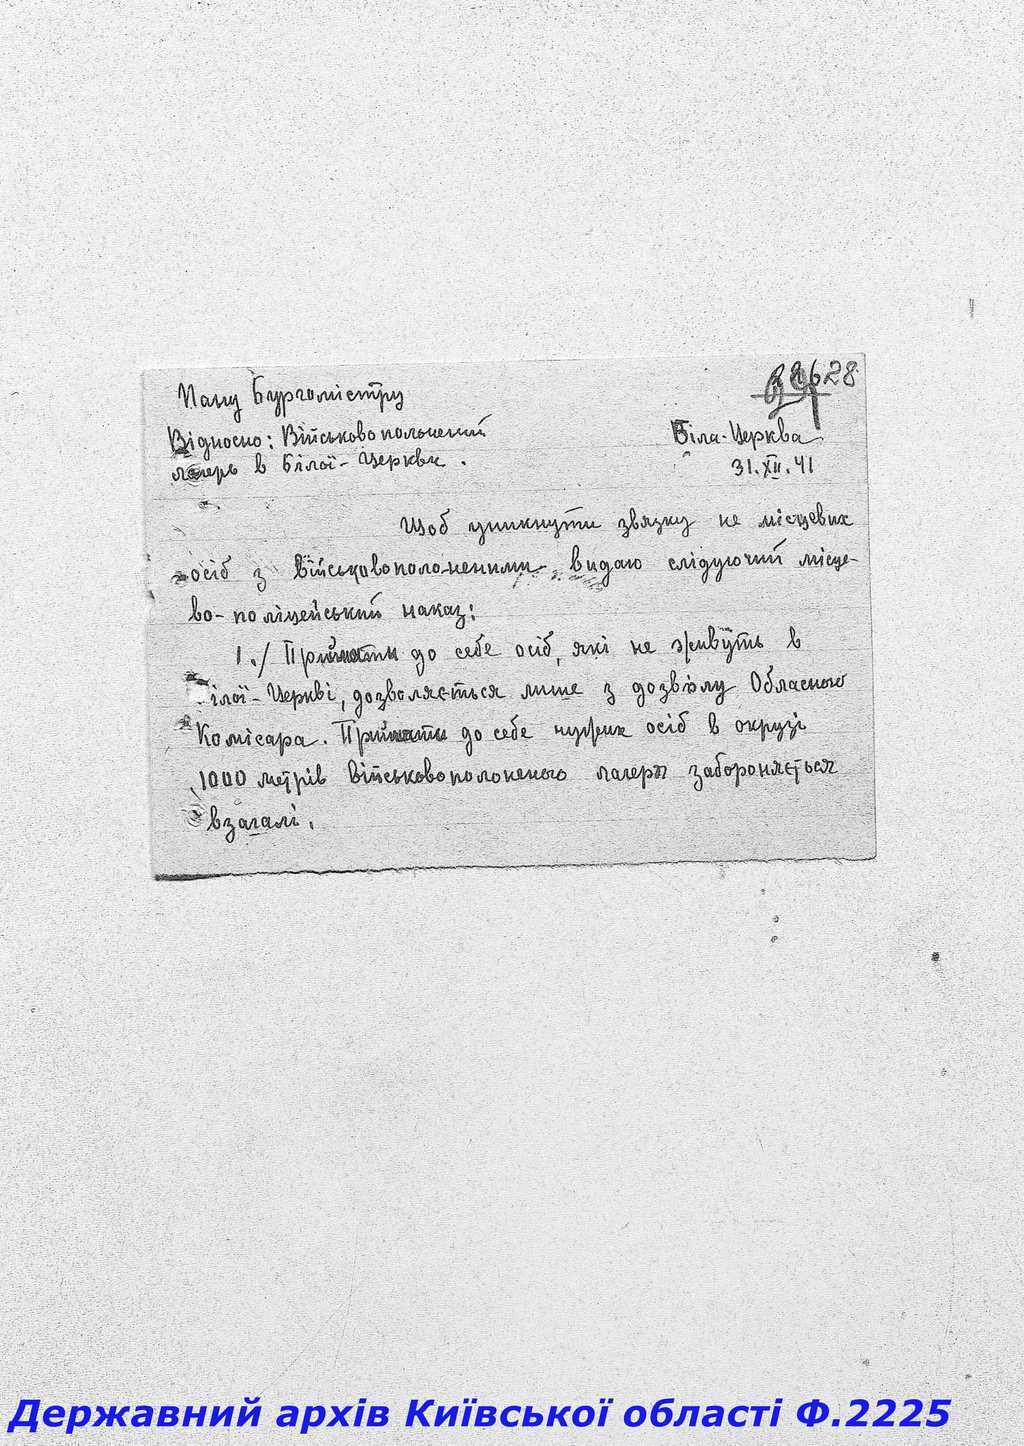 28
Пану Бургомістру
Відносно: Військовополонений
лагерь в Білої-Церкви.
Біла-Церква
31.XII.41
Щоб уникнути звязку не місцевих
осіб з військовополоненими видаю слідуючий місце-
во-поліцейський наказ:
1./ Приймати до себе осіб, які не живуть в
ілої-Церкві, дозволяється лише з дозвілу Обласного
Комісара. Приймати до себе чужих осіб в окрузі
1000 метрів військовополоненого лагеря забороняється
взагалі.
Державний архів Київської області Ф.2225